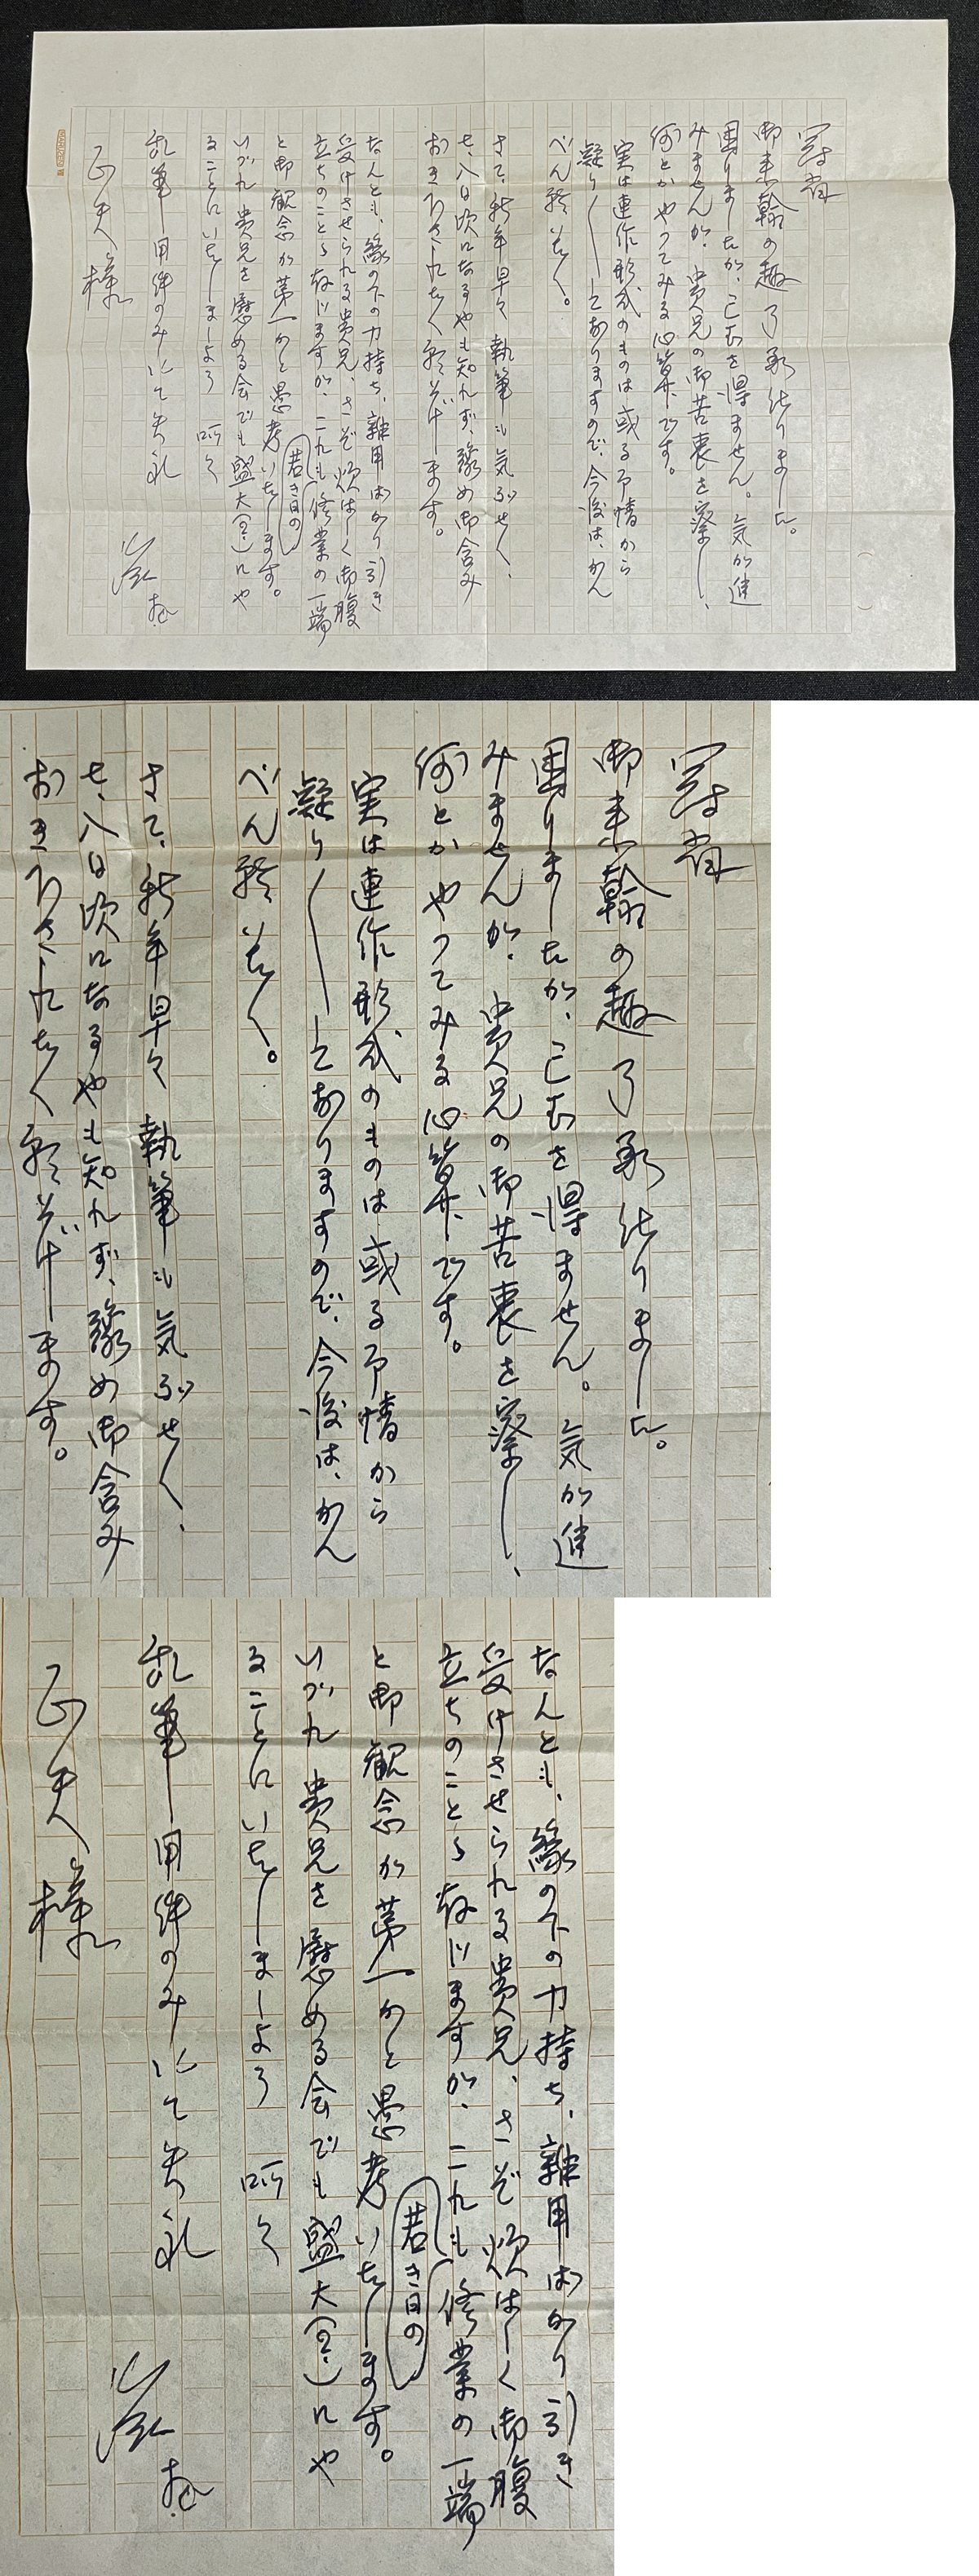 冠省
御来翰の趣了承仕りました。
困りましたが、已むを得ません。気が進
みませんが、貴兄の御苦衷を察し、
何とかやってみる心算です。
実は連作形式のものは或る事情から
凝り〱しておりますので、今後は、かん
べん願いたく。
さて、新年早々執筆も気ぶせく、
七、八日頃になるやも知れず、豫め御含み
おき下されたく願いあげます。
なんとも、縁の下の力持ち、雑用ばかり引き
受けさせられる貴兄、さぞ煩はしく御腹
立ちのことゝ存じますが、これも若き日の修業の一端
と御観念が第一かと愚考いたします。
いづれ貴兄を慰める会でも盛大(?)にや
ることにいたしましょう 呵々
乱筆用件のみにて失礼
正夫様